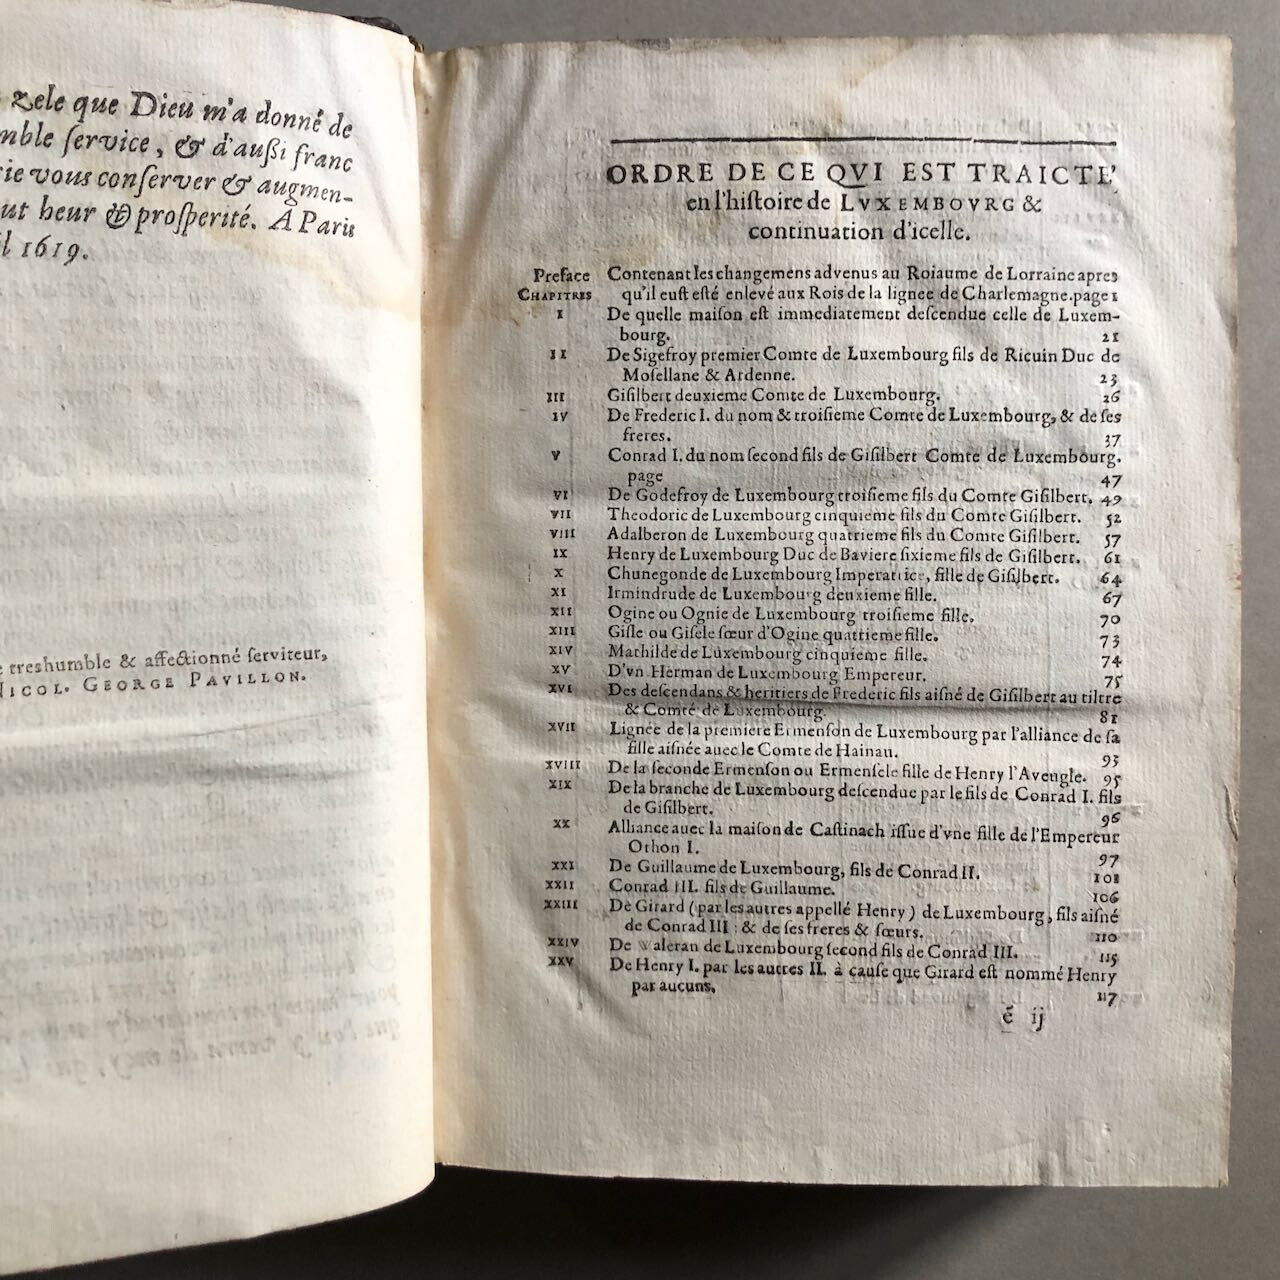 zele que Dieu m'a donné de
mble ſervice, & d'auſſi franc
rie vous conſerver & augmen-
ut heur & proſperité. A Paris
il 1619.
treshumble & affectionné ſerviteur,
NICOL. GEORGE PAVILLON.
ORDRE DE CE QVI EST TRAICTE'
en l'hiſtoire de LVXEMBOVRG &
continuation d'icelle.
Preface Contenant les changemens advenus au Roiaume de Lorraine apres
CHAPITRES qu'il euſt eſté enlevé aux Rois de la lignee de Charlemagne. page 1
I De quelle maiſon eſt immediatement deſcendue celle de Luxem-
bourg. 21
II De Sigefroy premier Comte de Luxembourg fils de Ricuin Duc de
Moſellane & Ardenne. 23
III Giſilbert deuxieme Comte de Luxembourg. 26
IV De Frederic I. du nom & troiſieme Comte de Luxembourg, & de ſes
freres. 37
V Conrad I. du nom ſecond fils de Giſilbert Comte de Luxembourg.
page 47
VI De Godefroy de Luxembourg troiſieme fils du Comte Giſilbert. 49
VII Theodoric de Luxembourg cinquieme fils du Comte Giſilbert. 52
VIII Adalberon de Luxembourg quatrieme fils du Comte Giſilbert. 57
IX Henry de Luxembourg Duc de Baviere ſixieme fils de Giſilbert. 61
X Chunegonde de Luxembourg Imperatrice, fille de Giſilbert. 64
XI Irmindrude de Luxembourg deuxieme fille. 67
XII Ogine ou Ognie de Luxembourg troiſieme fille. 70
XIII Giſle ou Giſele ſœur d'Ogine quatrieme fille. 73
XIV Mathilde de Luxembourg cinquieme fille. 74
XV D'vn Herman de Luxembourg Empereur. 75
XVI Des deſcendans & heritiers de Frederic fils aiſné de Giſilbert au tiltre
& Comté de Luxembourg. 81
XVII Lignée de la premiere Ermenſon de Luxembourg par l'alliance de ſa
fille aiſnée auec le Comte de Hainau. 93
XVIII De la ſeconde Ermenſon ou Ermenſele fille de Henry l'Aveugle. 95
XIX De la branche de Luxembourg deſcendue par le fils de Conrad I. fils
de Giſilbert. 96
XX Alliance auec la maiſon de Caſtinach iſſue d'vne fille de l'Empereur
Othon I. 97
XXI De Guillaume de Luxembourg, fils de Conrad II. 101
XXII Conrad III. fils de Guillaume. 106
XXIII De Girard (par les autres appellé Henry) de Luxembourg, fils aiſné
de Conrad III : & de ſes freres & ſœurs. 110
XXIV De Waleran de Luxembourg ſecond fils de Conrad III. 115
XXV De Henry I. par les autres II. à cauſe que Girard eſt nommé Henry
par aucuns. 117
é ij